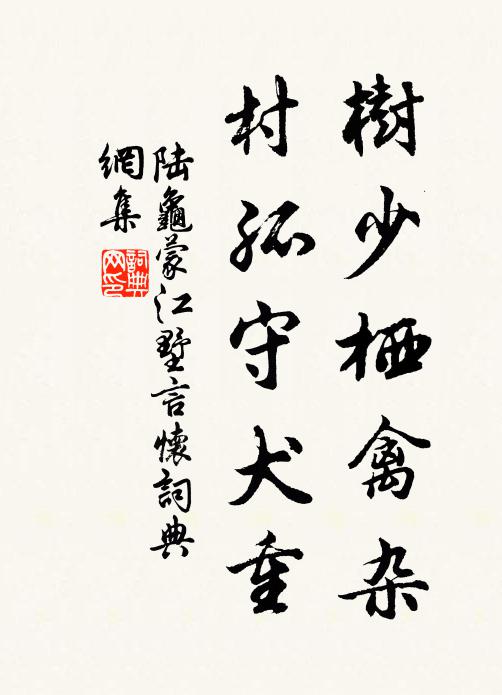 樹少栖禽杂
村孤守犬重
陆龜蒙江墅言懷詞典
網集
詞典
网印